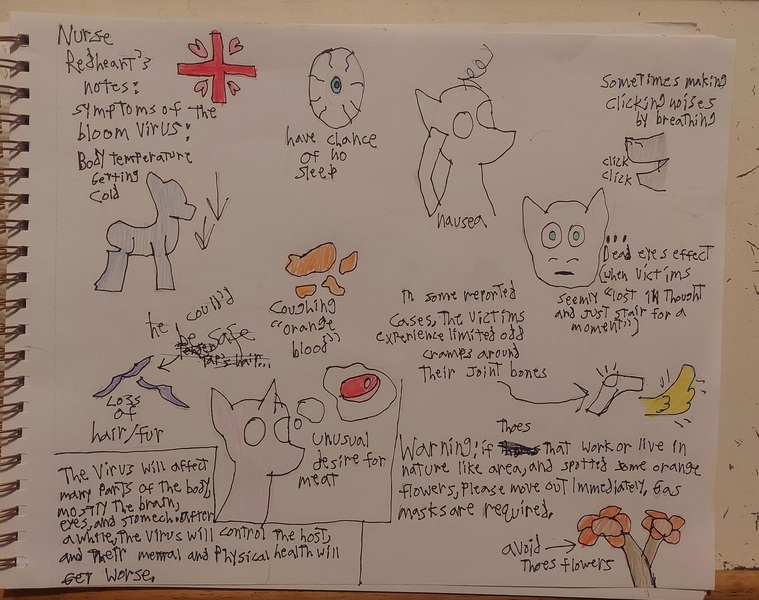 Nurse
Redheart's
notes:
symptoms of the
bloom virus:
Body temperature
Getting
cold
have chance
of no
sleep
nausea
Sometimes making
clicking noises
by breathing
click
click
...
Dead eyes effect
(when victims
seemly "lost in thought
and just stair for a
moment")
Coughing
"orange
blood"
he could
be safe
hair...
Loss
of
hair/fur
In some reported
cases, the victims
experience limited odd
cramps around
Their joint bones
unusual
desire for
meat
The virus will affect
many parts of the body,
mostly the brain,
eyes, and stomech. after
a while, the virus will control the host,
and their mental and physical health will
get worse.
Thoes
Warning! if that work or live in
nature like area, and spotted some orange
flowers, Please move out immediately, gas
masks are required.
avoid
thoes flowers